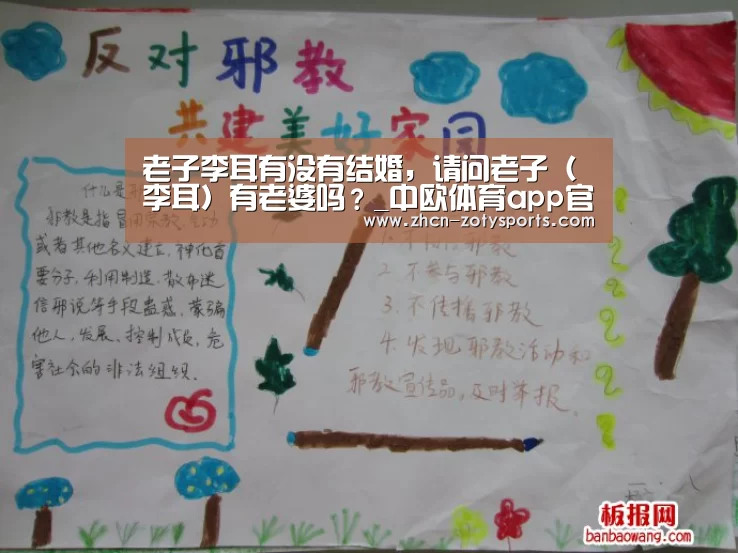 反对邪教
共建美好家园
老子李耳有没有结婚，请问老子（
李耳）有老婆吗？ 中欧体育app官
www.zhcn-zotysports.com
什么是
邪教是指冒用宗教、气功
或者其他名义建立，神化首
要分子，利用制造、散布迷
信邪说等手段蛊惑、蒙骗
他人，发展、控制成员，危
害社会的非法组织.
邪教
2. 不参与邪教
3. 不传播邪教
4. 发现邪教活动和
邪教宣传品，及时举报。
板报网
banbaowang.com